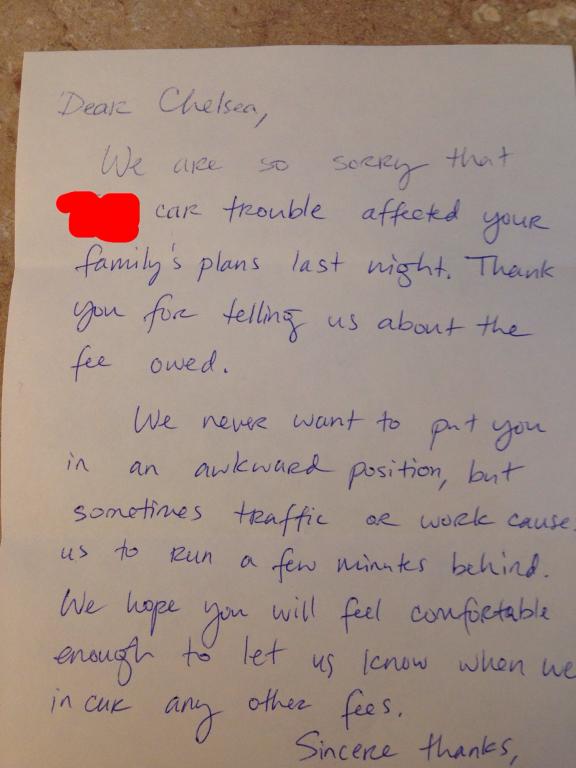 Dear Chelsea,
We are so sorry that
car trouble affected your
family's plans last night. Thank
you for telling us about the
fee owed.
We never want to put you
in an awkward position, but
sometimes traffic or work cause
us to run a few minutes behind.
We hope you will feel comfortable
enough to let us know when we
incur any other fees.
Sincere thanks,